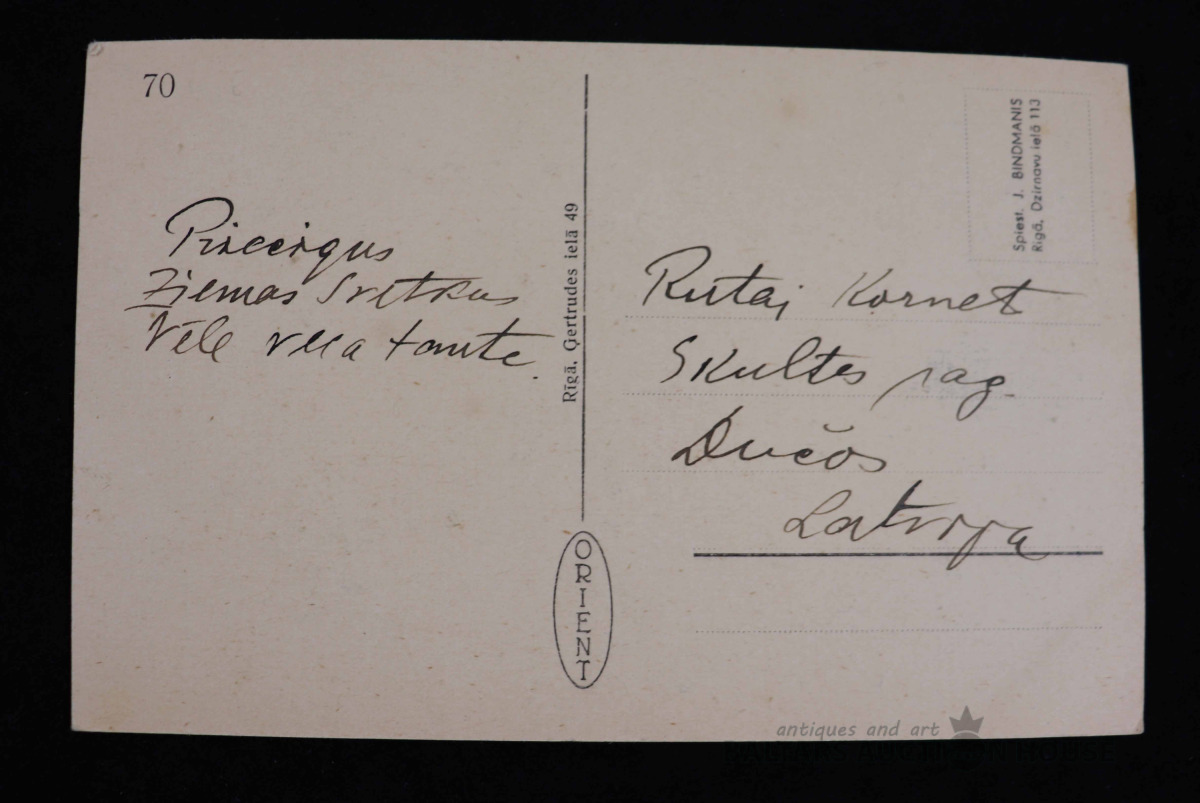 70
Priecīgus
Ziemas Svētkus
Vēlē veca tante.
Rīgā, Ģertrudes ielā 49
ORIENT
Spiest. J. BINDMANIS
Rīgā, Dzirnavu ielā 113
Rutaj Kornet
Skultes pag.
Dučos
Latvija
antiques and art